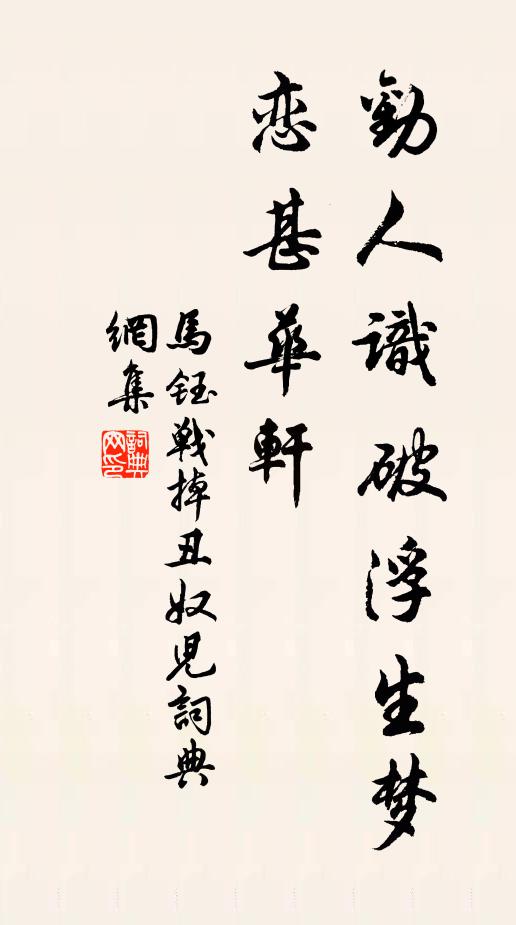 勸人識破浮生梦
恋甚華軒
馬鈺戰掉丑奴児詞典
網集
詞典
网印